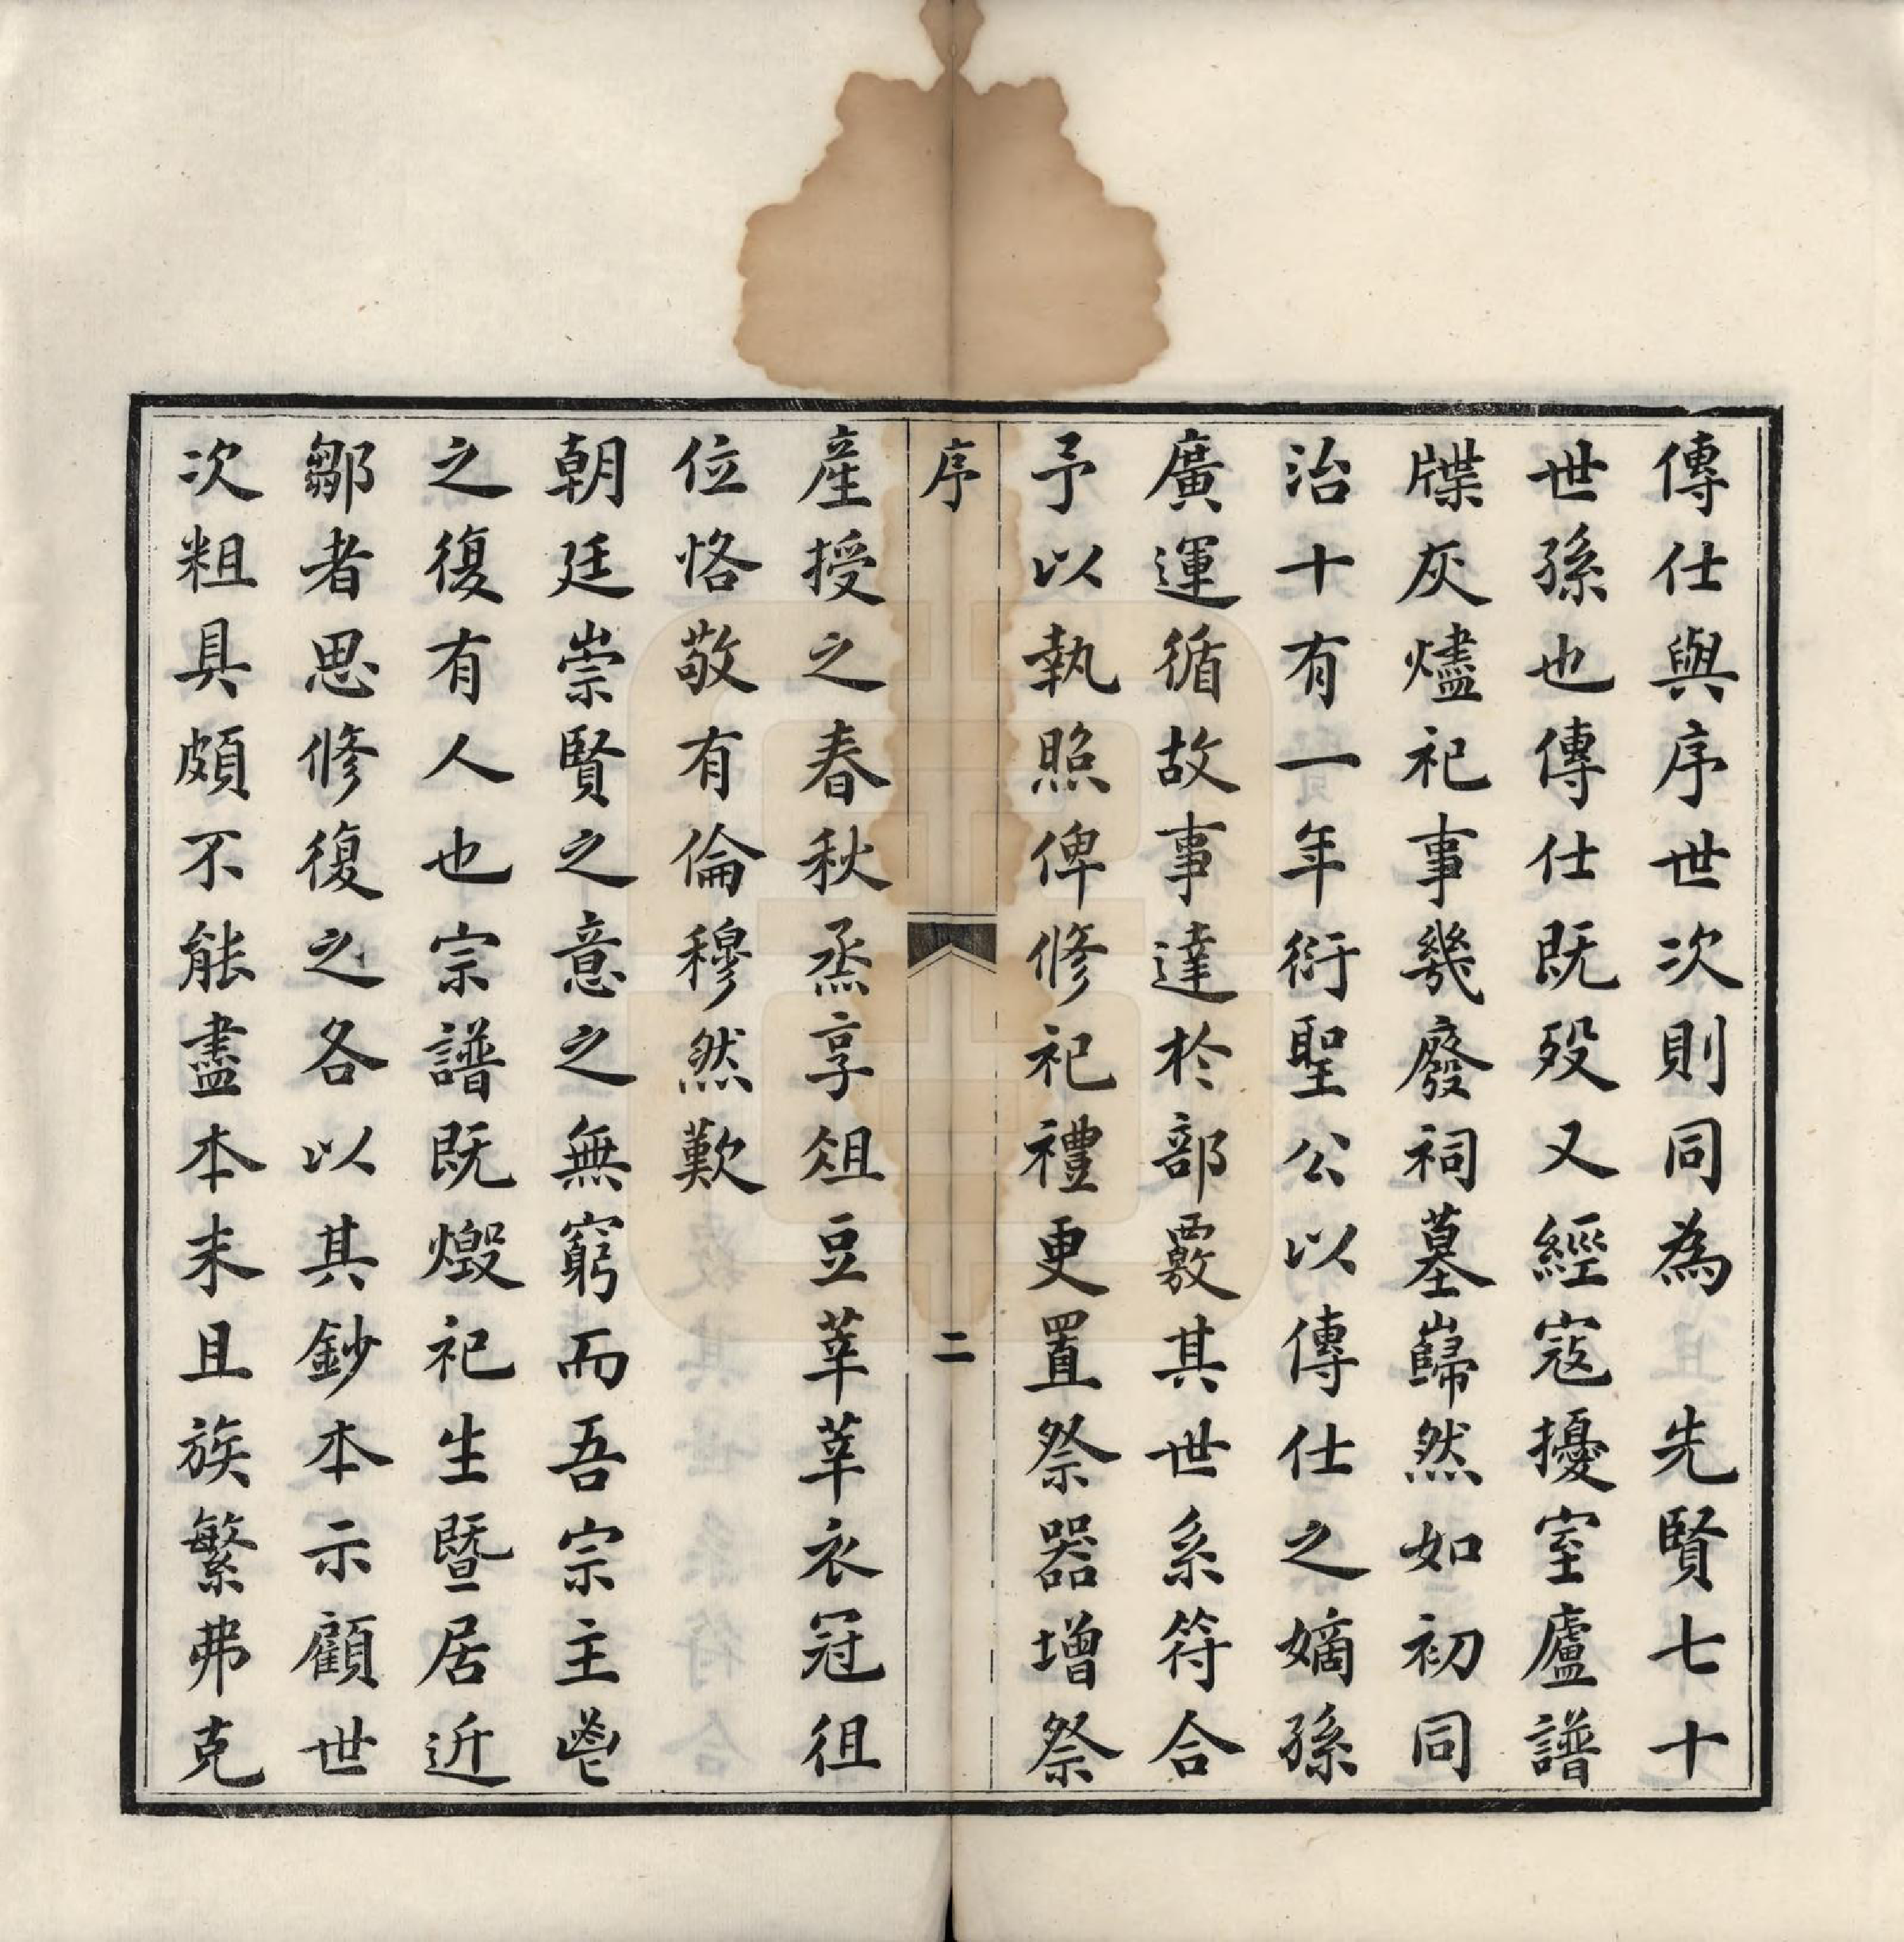 傳仕與序世次則同為　先賢七十
世孫也傳仕既歿又經寇擾室廬譜
牒灰燼祀事幾廢祠墓巋然如初同
治十有一年衍聖公以傳仕之嫡孫
廣運循故事達於部覈其世系符合
予以執照俾修祀禮更置祭器增祭
序
二
產授之春秋烝享俎豆莘莘衣冠徂
位恪敬有倫穆然歎
朝廷崇賢之意之無窮而吾宗主鬯
之復有人也宗譜既燬祀生暨居近
鄒者思修復之各以其鈔本示顧世
次粗具頗不能盡本末且族繁弗克